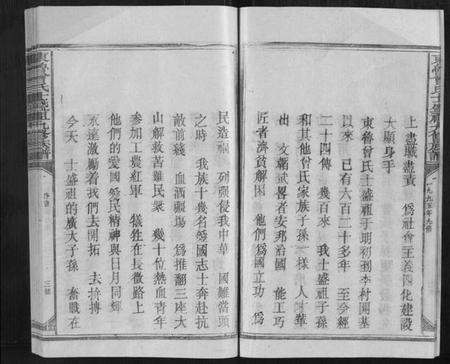 上盡職盡責 爲社會主義四化建設
大顯身手
東魯曾氏士盛祖于明初到李村開基
以来 已有六百二十多年 至今經
二十四傳 幾百來 我士盛祖子孫
和其他曾氏家族子孫一樣 人才輩
出 文韜武畧者安邦治國 能工巧
匠者濟貧解困 他們爲國立功 爲
民造福 列强侵我中華 國難當頭
之時 我族十幾名愛國志士奔赴抗
敵前綫 血洒疆場 爲推翻三座大
山解救苦難民衆 幾十位熱血青年
参加工農紅軍 犧牲在長徵路上
他們的愛國愛民精神與日月同輝
永遠激勵着我們去開拓 去拚搏
今天 士盛祖的廣大子孫 奮戰在
東魯曾氏士盛祖九修族譜
序言
三號
東魯曾氏士盛祖九修族譜
一九九五年九修